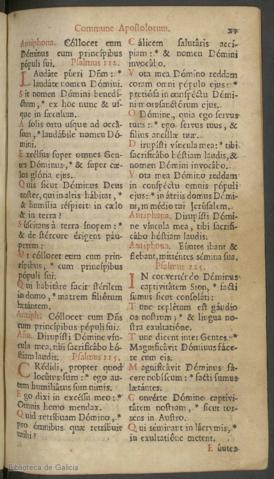 Commune Apostolorum.
Antiphona. Cóllocet eum
Dóminus cum princípibus
pópuli sui. Psalmus 112.
Laudáte pueri Dñm: *
laudáte nomen Dómini.
Sit nomen Dómini benedí-
ctum, * ex hoc nunc & us-
que in sæculum.
A solis ortu usque ad occá-
sum, * laudábile nomen Dó-
mini.
Excélsus super omnes Gen-
tes Dóminus, * & super cæ-
los glória ejus.
Quis sicut Dóminus Deus
noster, qui in altis hábitat, *
& humília réspicit in cælo
& in terra?
Súscitans à terra ínopem: *
& de stércore érigens páu-
perem:
Ut cóllocet eum cum prin-
cípibus, * cum princípibus
pópuli sui.
Qui habitáre facit stérilem
in domo, * matrem filiórum
lætántem.
Antiph. Cóllocet eum Dñs
cum princípibus pópuli sui.
Aña. Dirupísti Dómine vín-
cula mea, tibi sacrificábo hó-
stiam laudis. Psalmus 115.
Crédidi, propter quod
locútus sum: * ego au-
tem humiliátus sum nimis.
Ego dixi in excéssu meo: *
Omnis homo mendax.
Quid retríbuam Dómino, *
pro ómnibus quæ retríbuit
mihi?
Cálicem salutáris accí-
piam: * & nomen Dómini
invocábo.
Vota mea Dómino reddam
coram omni pópulo ejus: *
pretiósa in conspéctu Dómi-
ni mors sanctórum ejus.
O Dómine, quia ego servus
tuus: * ego servus tuus, &
fílius ancíllæ tuæ.
Dirupísti víncula mea: * tibi
sacrificábo hóstiam laudis, &
nomen Dómini invocábo.
Vota mea Dómino reddam
in conspéctu omnis pópuli
ejus: * in átriis domus Dómi-
ni, in médio tui Jerúsalem.
Antiphona. Dirupísti Dómi-
ne víncula mea, tibi sacrifi-
cábo hóstiam laudis.
Antiphona. Eúntes ibant &
flebant, mitténtes sémina sua.
Psalmus 125.
IN converténdo Dóminus
captivitátem Sion, * facti
sumus sicut consoláti:
Tunc replétum est gáudio
os nostrum: * & lingua no-
stra exultatióne.
Tunc dicent inter Gentes: *
Magnificávit Dóminus fáce-
re cum eis.
Magnificávit Dóminus fá-
cere nobíscum: * facti sumus
lætántes.
Convérte Dómine captivi-
tátem nostram, * sicut tor-
rens in Austro.
Qui séminant in lácrymis, *
in exultatióne metent.
Eúntes
Biblioteca de Galicia